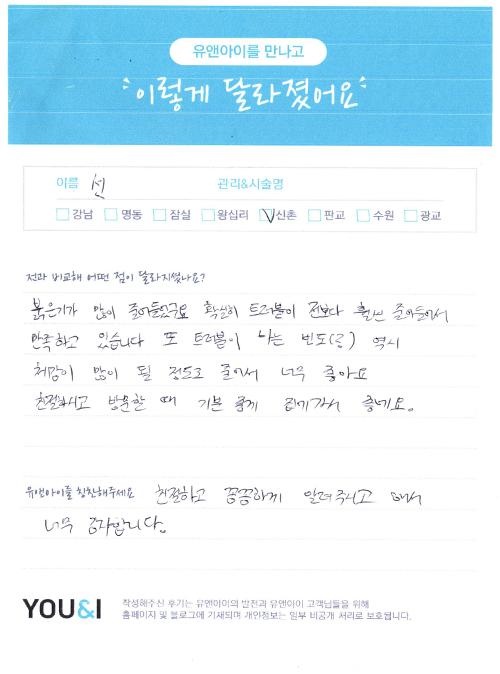 유앤아이를 만나고
이렇게 달라졌어요
이름 선 관리&시술명
강남 명동 잠실 왕십리 신촌 판교 수원 광교
전과 비교해 어떤 점이 달라지셨나요?
붉은기가 많이 줄어들었구요 확실히 트러블이 전보다 훨씬 줄어들어서
만족하고 있습니다 또 트러블이 나는 빈도(?) 역시
체감이 많이 될 정도로 줄어서 너무 좋아요
친절하시고 방문할 때 기분 좋게 좋네요.
유앤아이를 칭찬해주세요 친절하고 꼼꼼하게 알려주시고 해서
너무 감사합니다.
YOU&I
작성해주신 후기는 유앤아이의 발전과 유앤아이 고객님들을 위해
홈페이지 및 블로그에 기재되며 개인정보는 일부 비공개 처리로 보호됩니다.